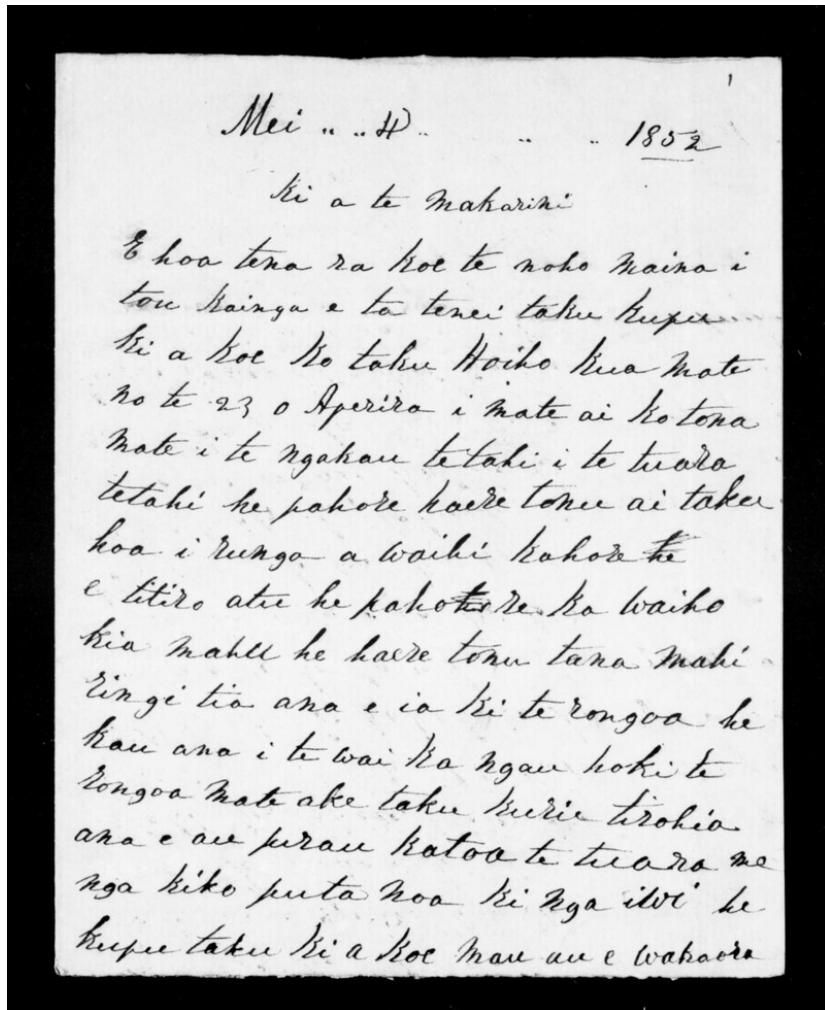 1
Mei „ „ 4 „ „ „ 1852
Ki a te Makarini
E hoa tena ra koe te noho maina i
tou kainga e ta tenei taku kupu
ki a koe ko taku Hoiho kua mate
no te 23 o Aperira i mate ai ko tona
mate i te ngakau tetahi i te tuara
tetahi he pahore haere tonu ai taku
hoa i runga a waihi kahore he
e titiro atu he pahore ka waiho
kia mahu he haere tonu tana mahi
ringi tia ana e ia ki te rongoa he
kau ana i te wai ka ngau hoki te
rongoa mate ake taku kurie tirohia
ana e au pirau katoa te tuara me
nga kiko puta noa ki nga iwi he
kupu taku ki a koe mau au e wakaora